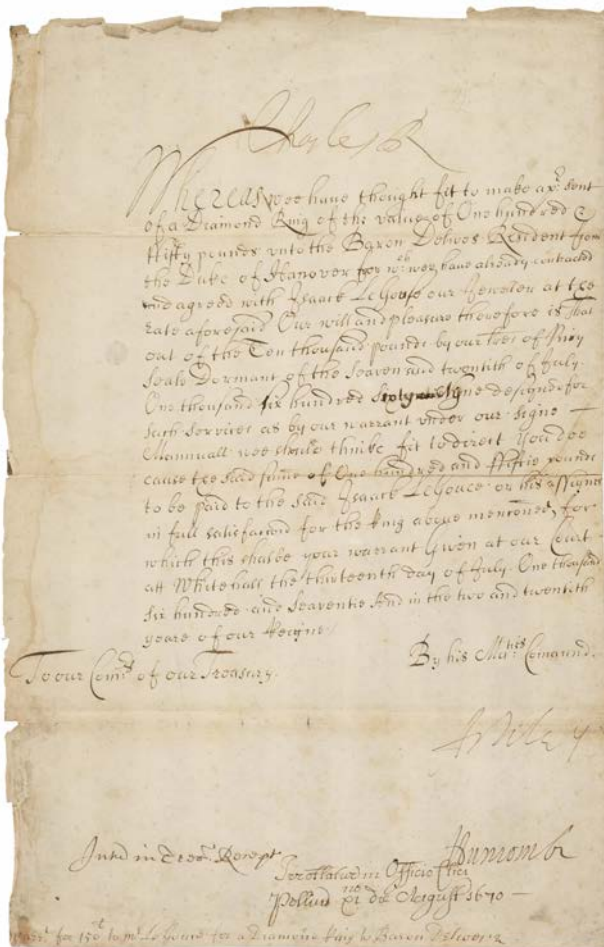 Charles R
Whereas wee have thought fit to make a pr:sent
of a Diamond Ring of the value of One hundred &
ffifty pounds unto the Baron Delwes Resident from
the Duke of Hanover for wch: wee have already contracted
and agreed with Isaack LeGouse our Jeweler at the
rate aforesaid Our will and pleasure therefore is That
out of the Ten thousand pounds by our Lres of Privy
Seale Dormant of the seaven and twentith of July
One thousand six hundred sixty nine designed for
such services as by our warrant under our signe
Mannuall wee should thinke fit to direct You doe
cause the said sume of One hundred and ffiftie pounds
to be paid to the said Isaack LeGouce or his assignes
in full satisfaccion for the Ring above mencioned, for
which this shalbe your warrant Given at our Court
att Whitehall the thirteenth day of July One thousand
six hundred and seaventie And in the two and twentith
yeare of our Reigne
By his Ma:ties Comaund.
To our Com:rs of our Treasury.
Ashley
JDuncombe
Intd in Recept
Irrotlatur in Officio Clici
Pellium xi:mo die August 1670
for 150l to Mr LeGouse for a Diamond Ring to Baron Delwes